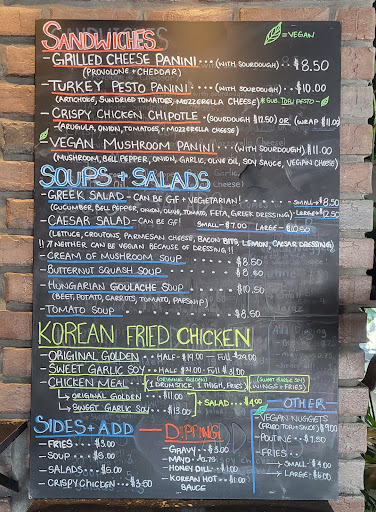 SANDWICHES
= VEGAN
- GRILLED CHEESE PANINI ... (WITH SOURDOUGH) .. $8.50
(PROVOLONE + CHEDDAR)
- TURKEY PESTO PANINI .... (WITH SOURDOUGH) .... $10.00
(ARTICHOKE, SUNDRIED TOMATOES, MOZZERELLA CHEESE) * SUB. TOFU PESTO -
- CRISPY CHICKEN CHIPOTLE . (SOURDOUGH $12.50) OR (WRAP $11.00)
(ARUGULA, ONION, TOMATOES, + MOZZERELLA CHEESE)
- VEGAN MUSHROOM PANINI ... (WITH SOURDOUGH) $11.00
(MUSHROOM, BELL PEPPER, ONION, GARLIC, OLIVE OIL, SOY SAUCE, VEGAN CHEESE)
SOUPS + SALADS
- GREEK SALAD - CAN BE GF + VEGETARIAN! SMALL - $8.50
(CUCUMBER, BELL PEPPER, ONION, OLIVE, TOMATO, FETA, GREEK DRESSING) LARGE - $12.50
- CAESAR SALAD - CAN BE GF! SMALL - $7.00 LARGE - $10.50
(LETTUCE, CROUTONS, PARMESAN CHEESE, BACON BITS, LEMON, CAESAR DRESSING)
!! NEITHER CAN BE VEGAN BECAUSE OF DRESSING !!
- CREAM OF MUSHROOM SOUP $8.50
- BUTTERNUT SQUASH SOUP $8.50
- HUNGARIAN GOULACHE SOUP $10.50
(BEEF, POTATO, CARROTS, TOMATO, PARSNIP)
- TOMATO SOUP $8.50
KOREAN FRIED CHICKEN
- ORIGINAL GOLDEN ... HALF - $19.00 - FULL $29.00
- SWEET GARLIC SOY .... HALF $21.00 - FULL $31.00
- CHICKEN MEAL ... (ORIGINAL GOLDEN) 1 DRUMSTICK, 1 THIGH, FRIES (SWEET GARLIC SOY) WINGS + FRIES
ORIGINAL GOLDEN .... $11.00
SWEET GARLIC SOY .... $13.00
+ SALAD .. $4.00
SIDES + ADD
- FRIES ... $3.00
- SOUP .... $8.00
- SALADS .... $5.00
- CRISPY CHICKEN ... $3.50
- DIPPING
- GRAVY .. $3.00
- MAYO .. 0.75
- HONEY DILL . $1.00
- KOREAN HOT . $1.00
SAUCE
- OTHER
- VEGAN NUGGETS
(FRIED TOFU + SAUCE) $9.00
- POUTINE ... $7.50
- FRIES ..
- SMALL . $4.00
- LARGE . $6.00